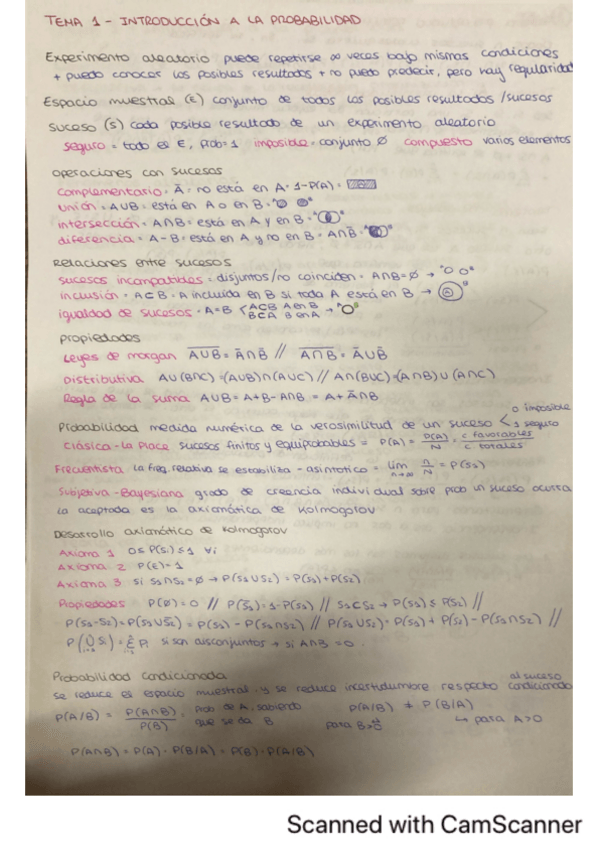 TEMA 1 - INTRODUCCIÓN A LA PROBABILIDAD
Experimento aleatorio puede repetirse ∞ veces bajo mismas condiciones
+ puedo conocer los posibles resultados + no puedo predecir, pero hay regularidad
Espacio muestral (E) conjunto de todos los posibles resultados /sucesos
Suceso (S) cada posible resultado de un experimento aleatorio
seguro = todo es E, prob=1 imposible = conjunto Ø compuesto varios elementos
Operaciones con sucesos
complementario = Ā = no está en A = 1-P(A) =
unión = A∪B = está en A o en B =
intersección = A∩B = está en A y en B =
diferencia = A-B = está en A y no en B = A∩B̄ =
Relaciones entre sucesos
sucesos incompatibles = disjuntos/no coinciden = A∩B=Ø →
inclusión = A⊂B = A incluida en B si toda A está en B →
igualdad de sucesos = A=B < A⊂B A en B
B⊂A B en A →
Propiedades
Leyes de morgan \overline{A∪B} = Ā∩B̄ // \overline{A∩B} = Ā∪B̄
Distributiva A∪(B∩C)=(A∪B)∩(A∪C) // A∩(B∪C)=(A∩B)∪(A∩C)
Regla de la suma A∪B = A+B-A∩B = A+Ā∩B
0 imposible
Probabilidad medida numérica de la verosimilitud de un suceso < 1 seguro
Clásica - La Place sucesos finitos y equiprobables = P(A) = P(A)/N = c favorables / c totales
Frecuentista La freq. relativa se estabiliza - asintotico = lim n→∞ n/N = P(S1)
Subjetiva - Bayesiana grado de creencia individual sobre prob un suceso ocurra
La aceptada es la axiomática de Kolmogorov
Desarrollo axiomático de Kolmogorov
Axioma 1 0≤P(Si)≤1 ∀i
Axioma 2 P(E)=1
Axioma 3 si S1∩S2=Ø → P(S1∪S2)=P(S1)+P(S2)
Propiedades P(Ø)=0 // P(S̄1)=1-P(S1) // S1⊂S2 → P(S1)≤P(S2) //
P(S1-S2)=P(S1∪S̄2)=P(S1)-P(S1∩S2) // P(S1∪S2)=P(S1)+P(S2)-P(S1∩S2) //
P(∪Si)=ΣPi si son disconjuntos → si A∩B=0.
Probabilidad condicionada
al suceso
se reduce el espacio muestral y se reduce incertidumbre respecto condicionado
P(A/B) = P(A∩B)/P(B), prob de A, sabiendo que se da B
P(A/B) ≠ P(B/A)
para B>0 ↳ para A>0
P(A∩B)=P(A)·P(B/A)=P(B)·P(A/B)
Scanned with CamScanner